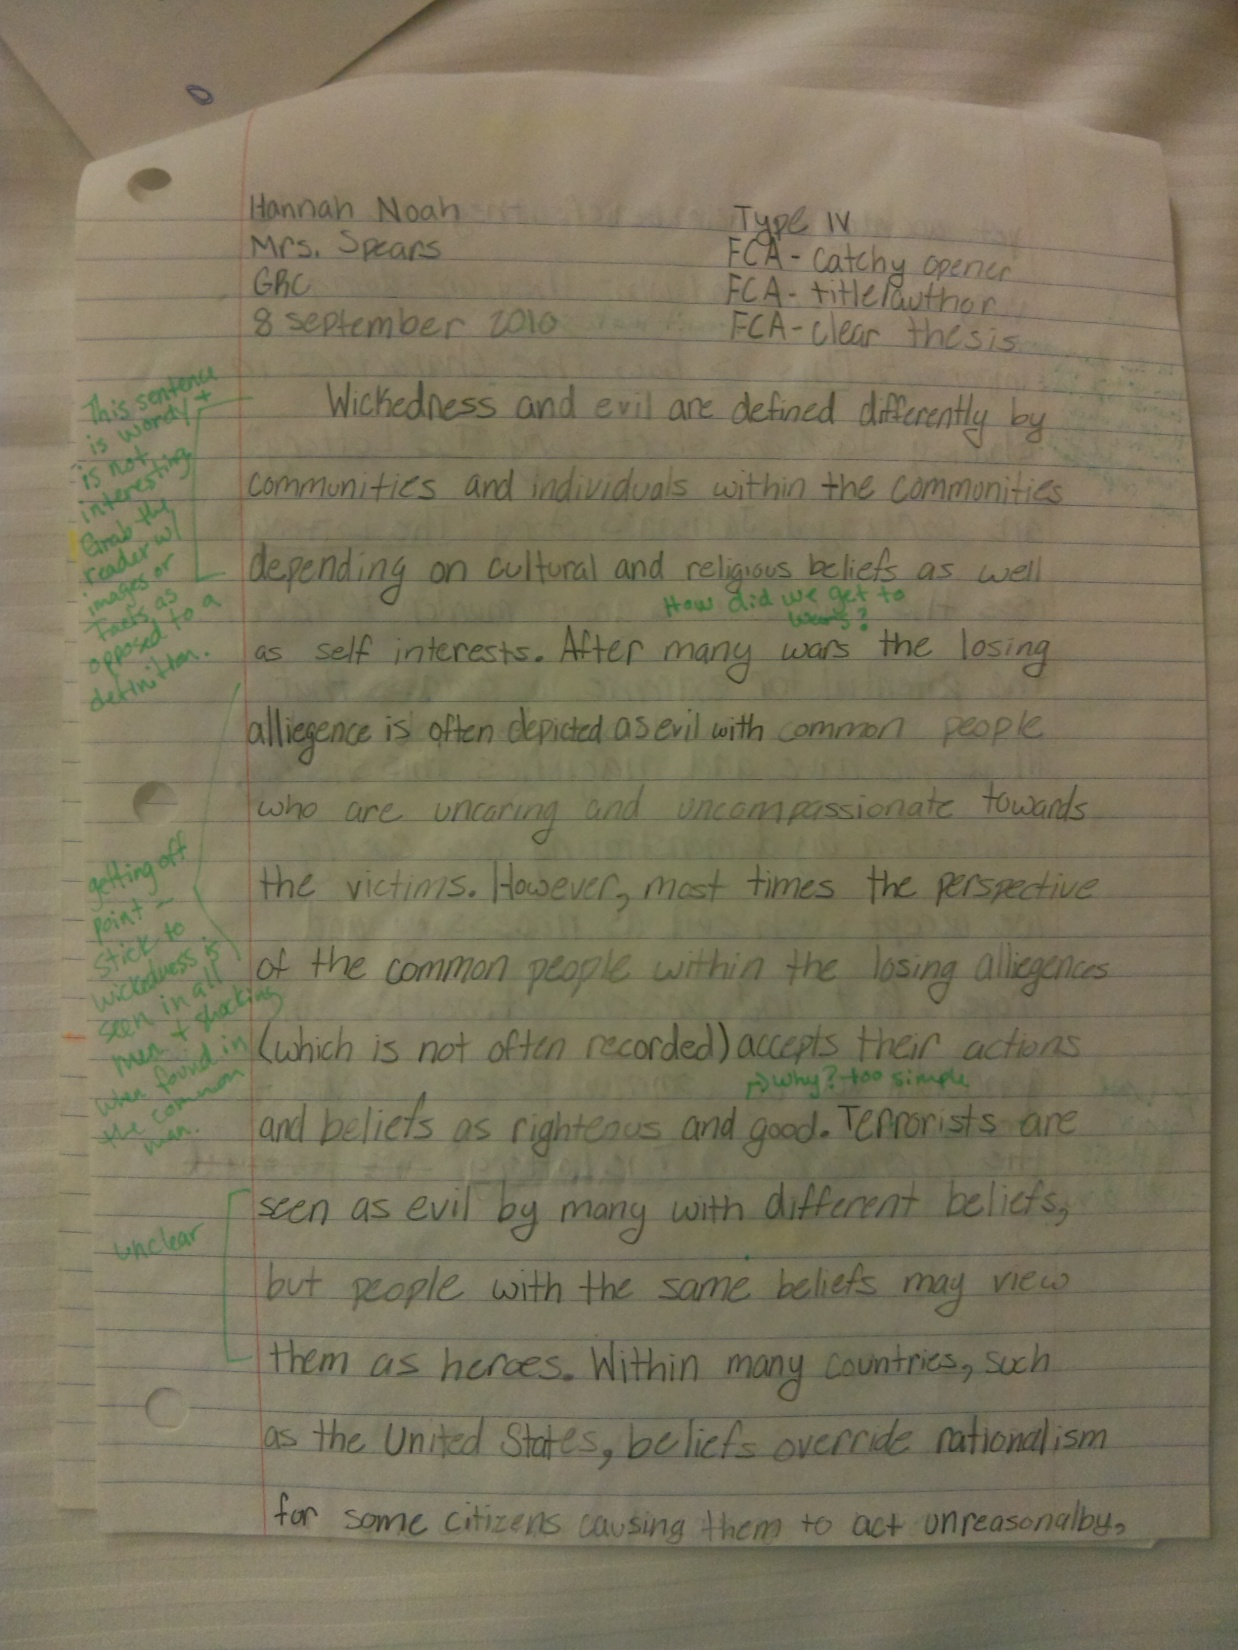 Hannah Noah
Mrs. Spears
GRC
8 september 2010
Type IV
FCA - catchy opener
FCA - title/author
FCA - clear thesis
This sentence
is wordy +
is not
interesting
Grab the
reader w/
images or
facts as
opposed to a
definition.
Wickedness and evil are defined differently by
communities and individuals within the communities
depending on cultural and religious beliefs as well
How did we get to
wars?
as self interests. After many wars the losing
alliegence is often depicted as evil with common people
who are uncaring and uncompassionate towards
the victims. However, most times the perspective
of the common people within the losing alliegences
(which is not often recorded) accepts their actions
why? too simple
and beliefs as righteous and good. Terrorists are
seen as evil by many with different beliefs,
but people with the same beliefs may view
them as heroes. Within many countries, such
as the United States, beliefs override rationalism
for some citizens causing them to act unreasonalby,
getting off
point -
stick to
wickedness is
seen in all
men + shocking
when found in
the common
man.
unclear